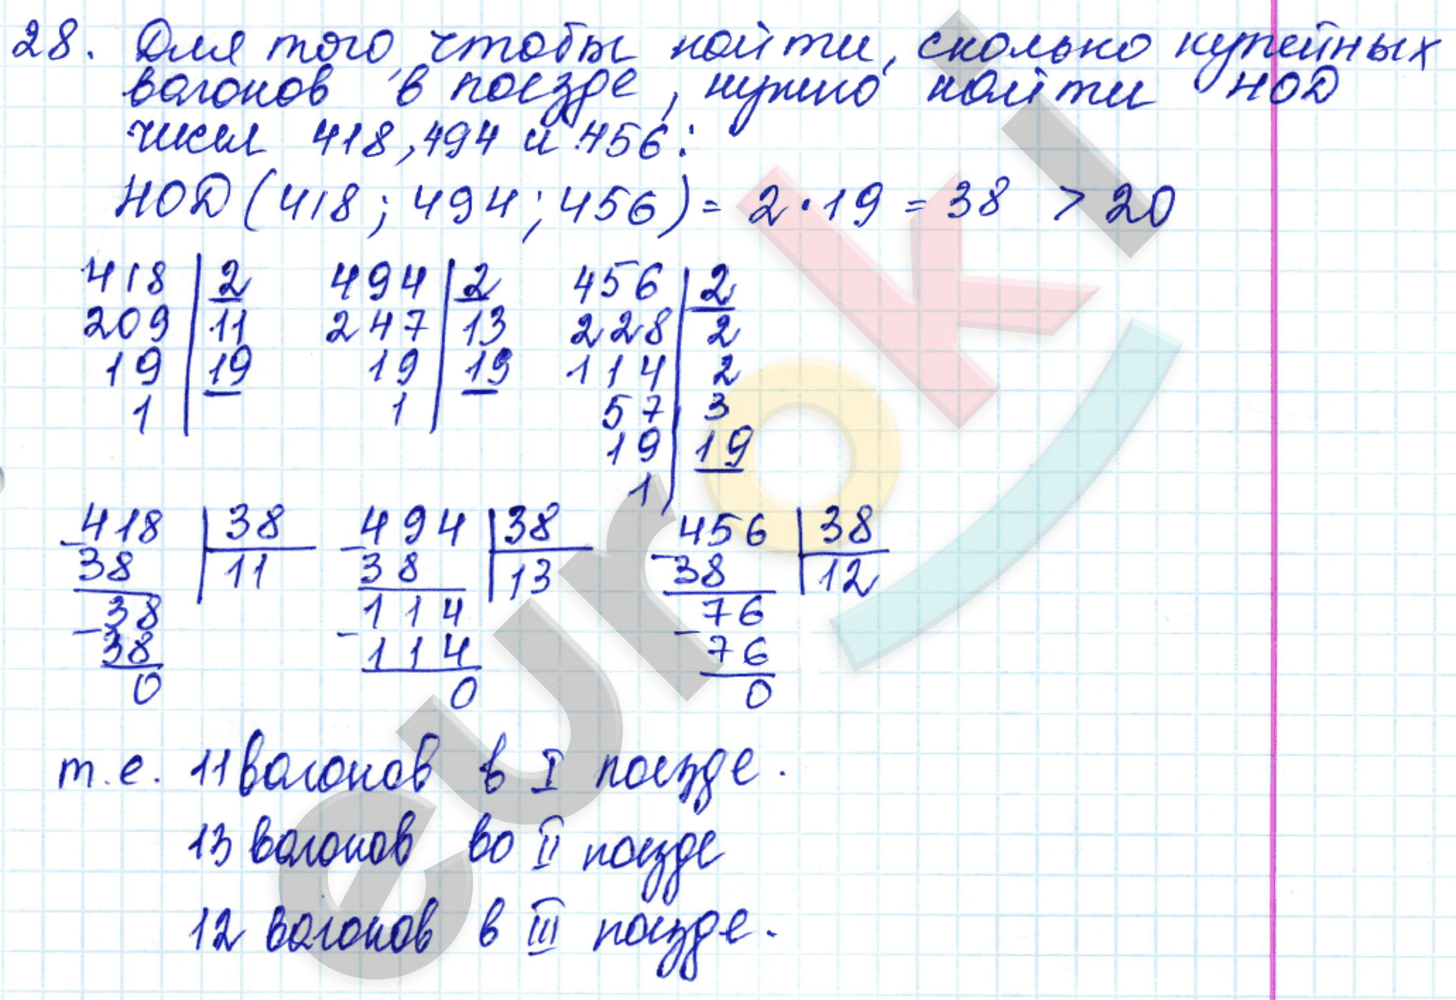 28. Для того, чтобы найти, сколько купейных
вагонов в поезде, нужно найти НОД
чисел 418, 494 и 456:
НОД (418; 494; 456) = 2 · 19 = 38 > 20
418 | 2 494 | 2 456 | 2
209 | 11 247 | 13 228 | 2
19 | 19 19 | 19 114 | 2
1 | 1 | 57 | 3
19 | 19
1 |
- 418 | 38 - 494 | 38 - 456 | 38
38 | 11 38 | 13 38 | 12
- 38 - 114 - 76
38 114 76
0 0 0
т.е. 11 вагонов в I поезде.
13 вагонов во II поезде
12 вагонов в III поезде.
euroki